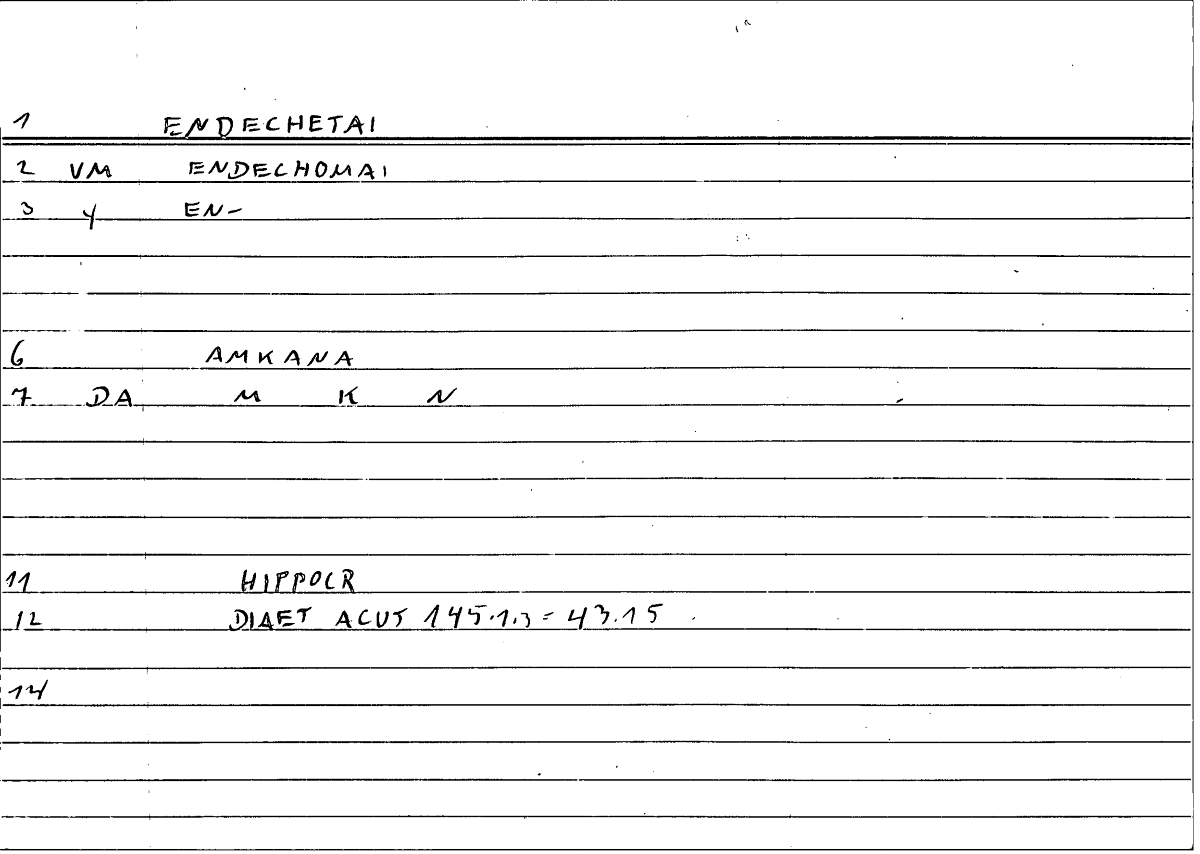 1 ENDECHETAI
2 VM ENDECHOMAI
3 Y EN-
6 AMKANA
7 DA M K N
11 HIPPOCR
12 DIAET ACUT 145.1.3 = 43.15
14